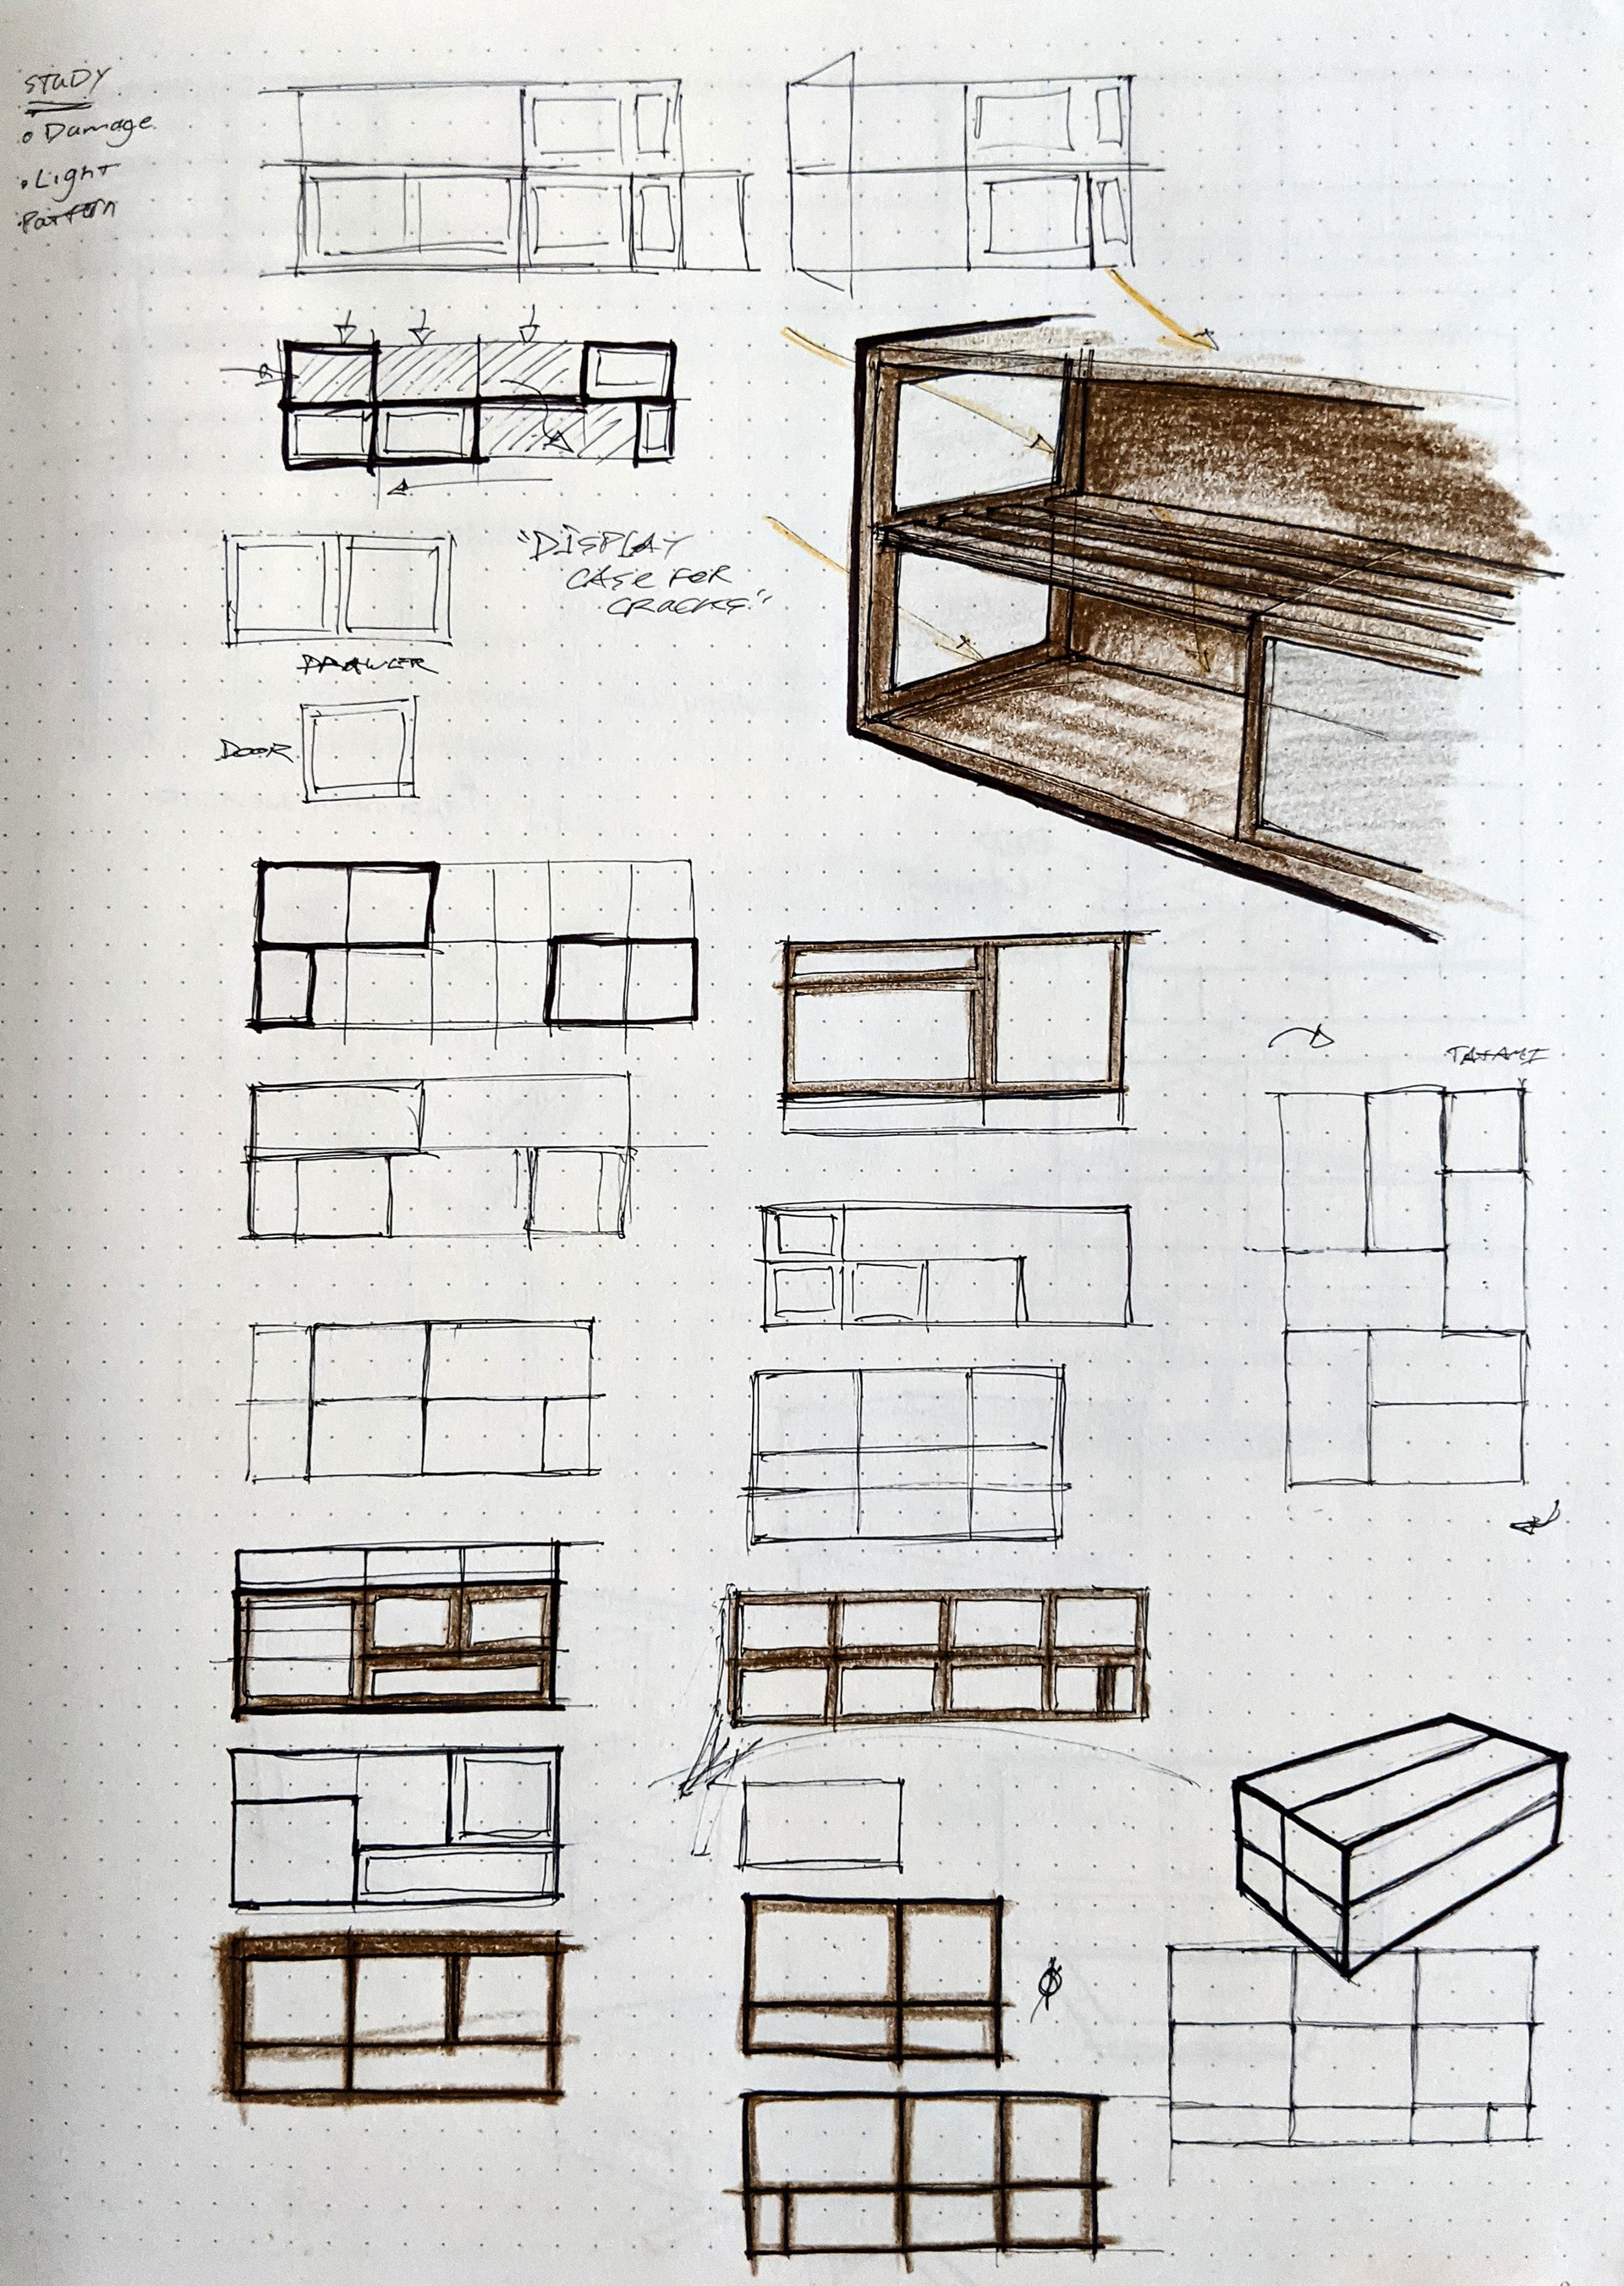 STUDY
• Damage
• Light
• Pattern
"DISPLAY
CASE FOR
CRACKS"
DRAWER
DOOR
TATAMI